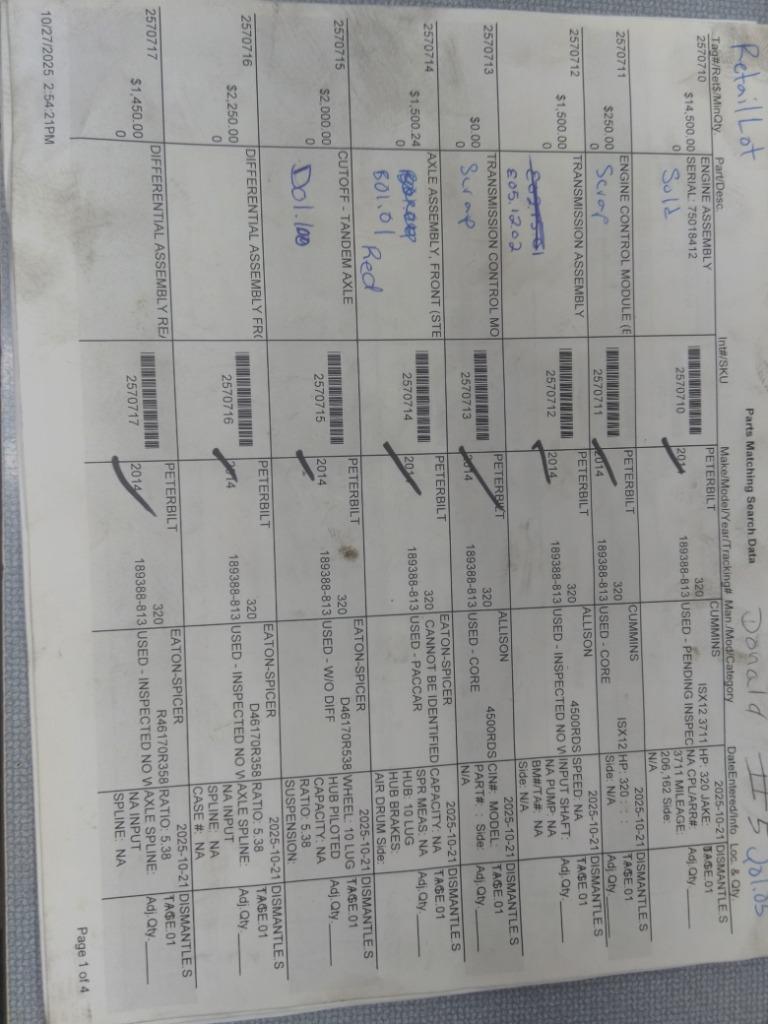 Retail Lot
Donald
#5
Parts Matching Search Data
Tag#/Ret$/MinQty Part/Desc. Int#/SKU Make/Model/Year/Tracking# Man./Mod/Category DateEntered/Info Loc. & Qty
2570710 ENGINE ASSEMBLY 2570710 PETERBILT 320 CUMMINS ISX12 3711 2025-10-21 DISMANTLE.S
$14,500.00 SERIAL: 75018412 2014 189388-813 USED - PENDING INSPEC HP: 320 JAKE:
0 Sold NA CPL/ARR# Adj.Qty
3711 MILEAGE:
206,162 Side:
N/A
2570711 ENGINE CONTROL MODULE (E 2570711 PETERBILT 320 CUMMINS ISX12 2025-10-21 DISMANTLE.S
$250.00 Scrap 2014 189388-813 USED - CORE HP: 320 : :
0 Side: N/A Adj.Qty
2570712 TRANSMISSION ASSEMBLY 2570712 PETERBILT 320 ALLISON 4500RDS 2025-10-21 DISMANTLE.S
$1,500.00 2014 189388-813 USED - INSPECTED NO W SPEED: NA
0 E05.1202 INPUT SHAFT: Adj.Qty
NA PUMP: NA
BM#/TA#: NA
Side: N/A
2570713 TRANSMISSION CONTROL MO 2570713 PETERBILT 320 ALLISON 4500RDS 2025-10-21 DISMANTLE.S
$0.00 Scrap 2014 189388-813 USED - CORE CIN#: MODEL:
0 PART#: : Side: Adj.Qty
N/A
2570714 AXLE ASSEMBLY, FRONT (STE 2570714 PETERBILT 320 EATON-SPICER CANNOT BE IDENTIFIED 2025-10-21 DISMANTLE.S
$1,500.24 2014 189388-813 USED - PACCAR CAPACITY: NA
0 B01.01 Red SPR MEAS: NA Adj.Qty
HUB: 10 LUG
HUB BRAKES:
AIR DRUM Side:
2570715 CUTOFF - TANDEM AXLE 2570715 PETERBILT 320 EATON-SPICER D46170R538 2025-10-21 DISMANTLE.S
$2,000.00 2014 189388-813 USED - W/O DIFF WHEEL: 10 LUG
0 D01.100 HUB PILOTED Adj.Qty
CAPACITY: NA
RATIO: 5.38
SUSPENSION:
2570716 DIFFERENTIAL ASSEMBLY FRO 2570716 PETERBILT 320 EATON-SPICER D46170R358 2025-10-21 DISMANTLE.S
$2,250.00 2014 189388-813 USED - INSPECTED NO W RATIO: 5.38
0 AXLE SPLINE: Adj.Qty
NA INPUT
SPLINE: NA
CASE #: NA
2570717 DIFFERENTIAL ASSEMBLY REA 2570717 PETERBILT 320 EATON-SPICER R46170R358 2025-10-21 DISMANTLE.S
$1,450.00 2014 189388-813 USED - INSPECTED NO W RATIO: 5.38
0 AXLE SPLINE: Adj.Qty
NA INPUT
SPLINE: NA
10/27/2025 2:54:21PM
Page 1 of 4